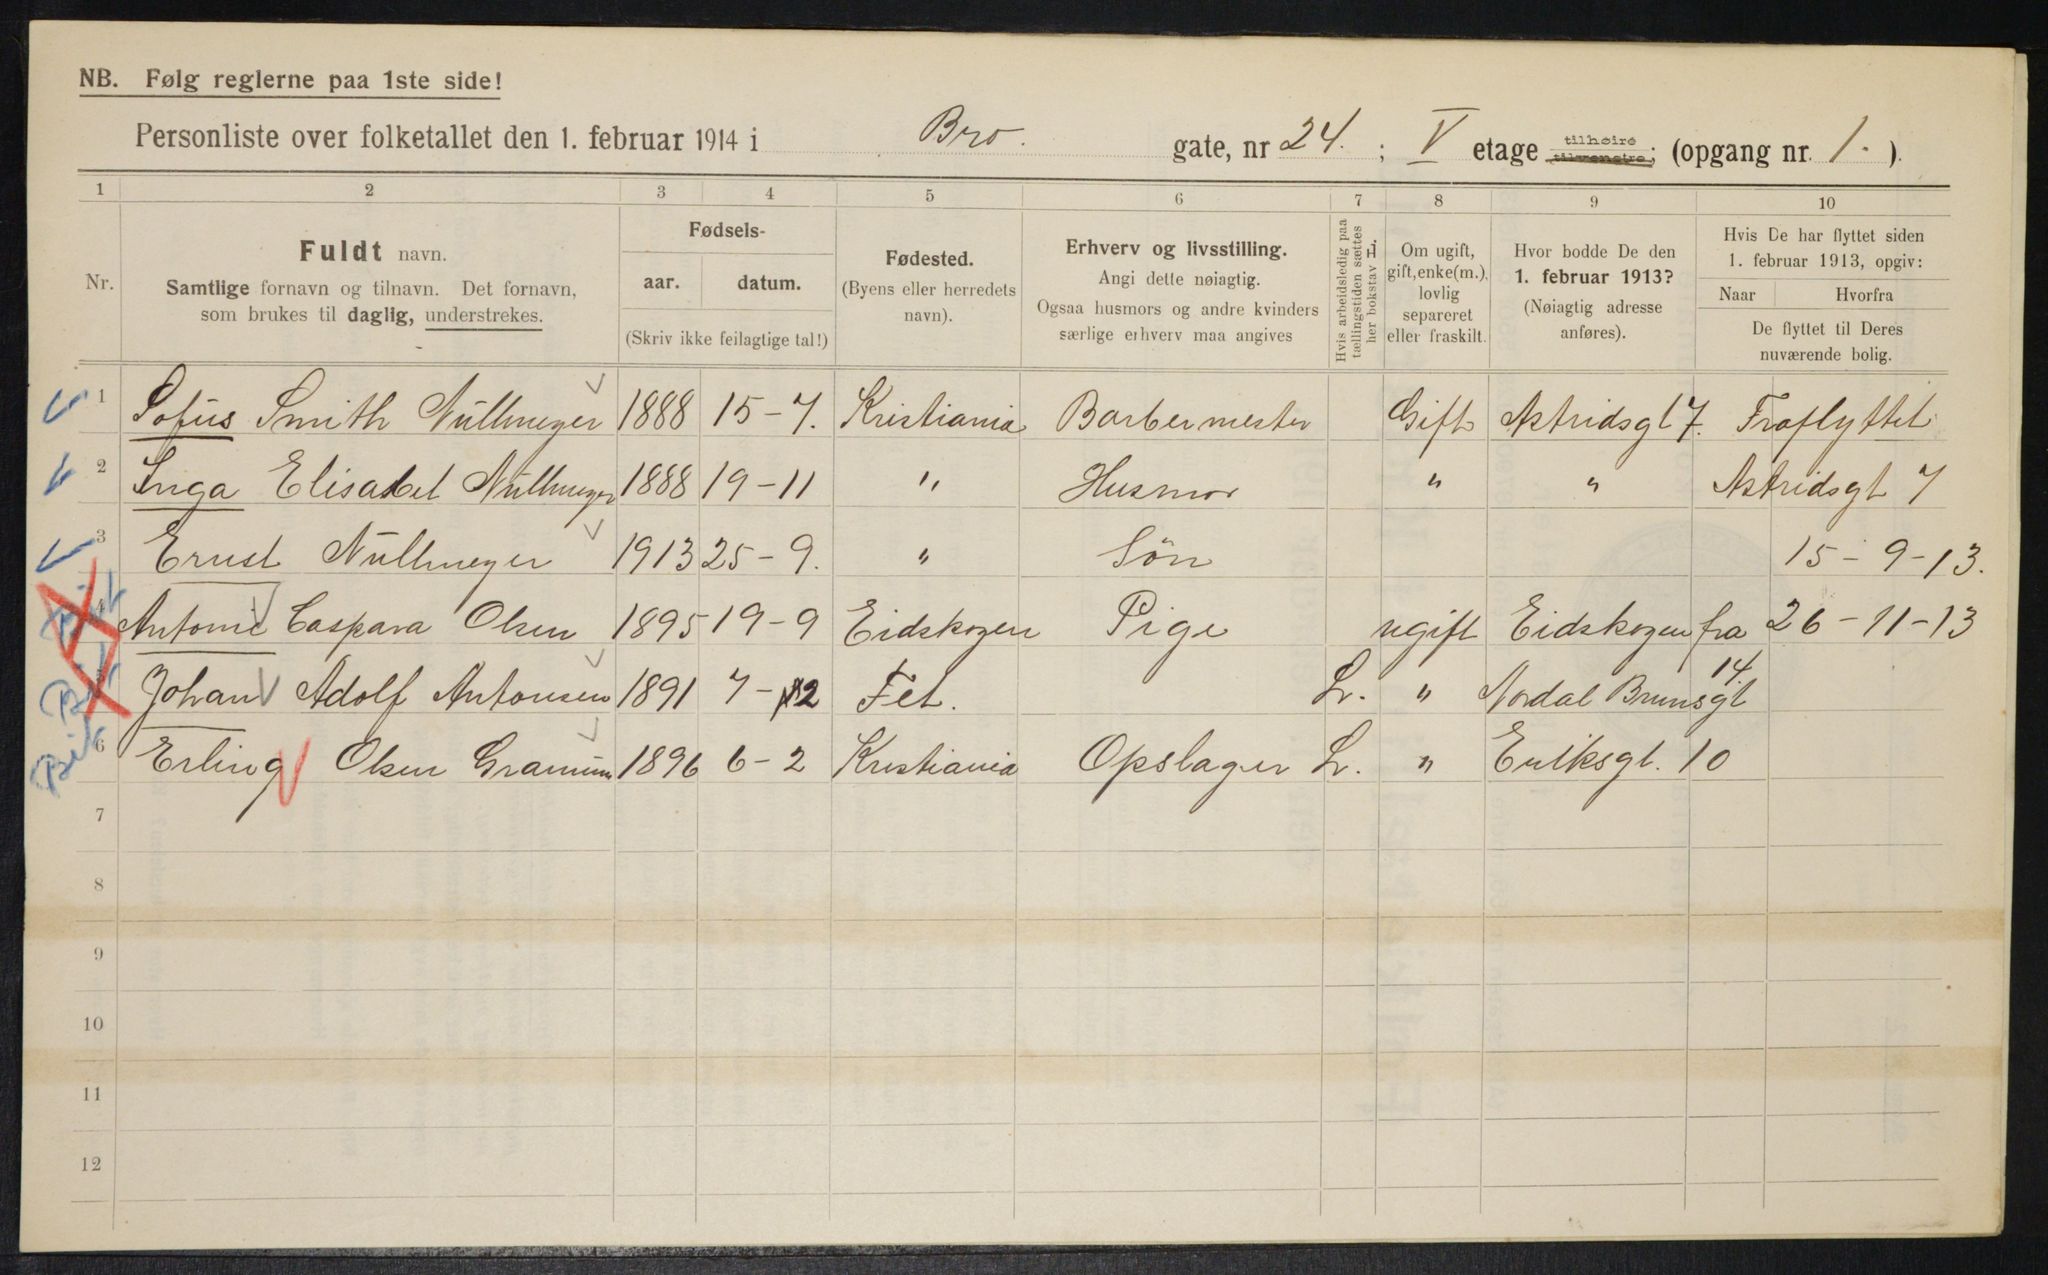 NB. Følg reglerne paa 1ste side!
Personliste over folketallet den 1. februar 1914 i Bro. gate, nr 24. ; V etage tilhøire tilvenstre; (opgang nr. 1. ).
1 2 3 4 5 6 7 8 9 10
Nr.
Fuldt navn.
Samtlige fornavn og tilnavn. Det fornavn,
som brukes til daglig, understrekes.
Fødsels-
aar. datum.
(Skriv ikke feilagtige tal!)
Fødested.
(Byens eller herredets
navn).
Erhverv og livsstilling.
Angi dette nøiagtig.
Ogsaa husmors og andre kvinders
særlige erhverv maa angives
Hvis arbeidsledig paa
tællingstiden sættes
her bokstav L.
Om ugift,
gift, enke(m.),
lovlig
separeret
eller fraskilt.
Hvor bodde De den
1. februar 1913?
(Nøiagtig adresse
anføres).
Hvis De har flyttet siden
1. februar 1913, opgiv:
Naar Hvorfra
De flyttet til Deres
nuværende bolig.
1 Sofus Smith Nüllmeyer 1888 15-7. Kristiania Barbermester Gift Astridsgt 7. Fraflyttet
2 Inga Elisabet Nüllmeyer 1888 19-11 " Husmor " " Astridsgt 7
3 Ernst Nüllmeyer 1913 25-9. " Sön 15-9-13.
4 Antonie Caspara Olsen 1895 19-9 Eidskogen Pige ugift Eidskogen fra 26-11-13
5 Johan Adolf Antonsen 1891 7-12 Fet. L. " Nordal Brunsgt 14.
6 Erling Olsen 1896 6-2 Kristiania Opslager L. " Eriksgt. 10
7
8
9
10
11
12